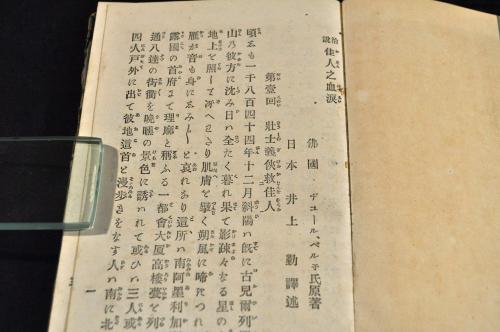 治說佳人之血淚
佛國 ヂュールベルネ氏原著
日本 井上勤譯述
第壹回 壯士義俠救佳人
頃ゑも一千八百四十四年十二月斜陽ハ既に古兒爾列
山乃彼方に沈み日ハ全たく暮れ果て影疎々なる星の
地上を照して冴へまさり肌膚を擘く朔風に啼きつれ
雁が音も身にゑみ〳〵と哀れあり這所ハ南阿墨利加
露國の首府まて理廊と稱ふる一都會大厦高樓甍を列
通八達の街衢を晚睡の景色に誘れて或ひハ三人或
四人戶外に出て彼地這首と漫步きをなす人ハ南に北
一